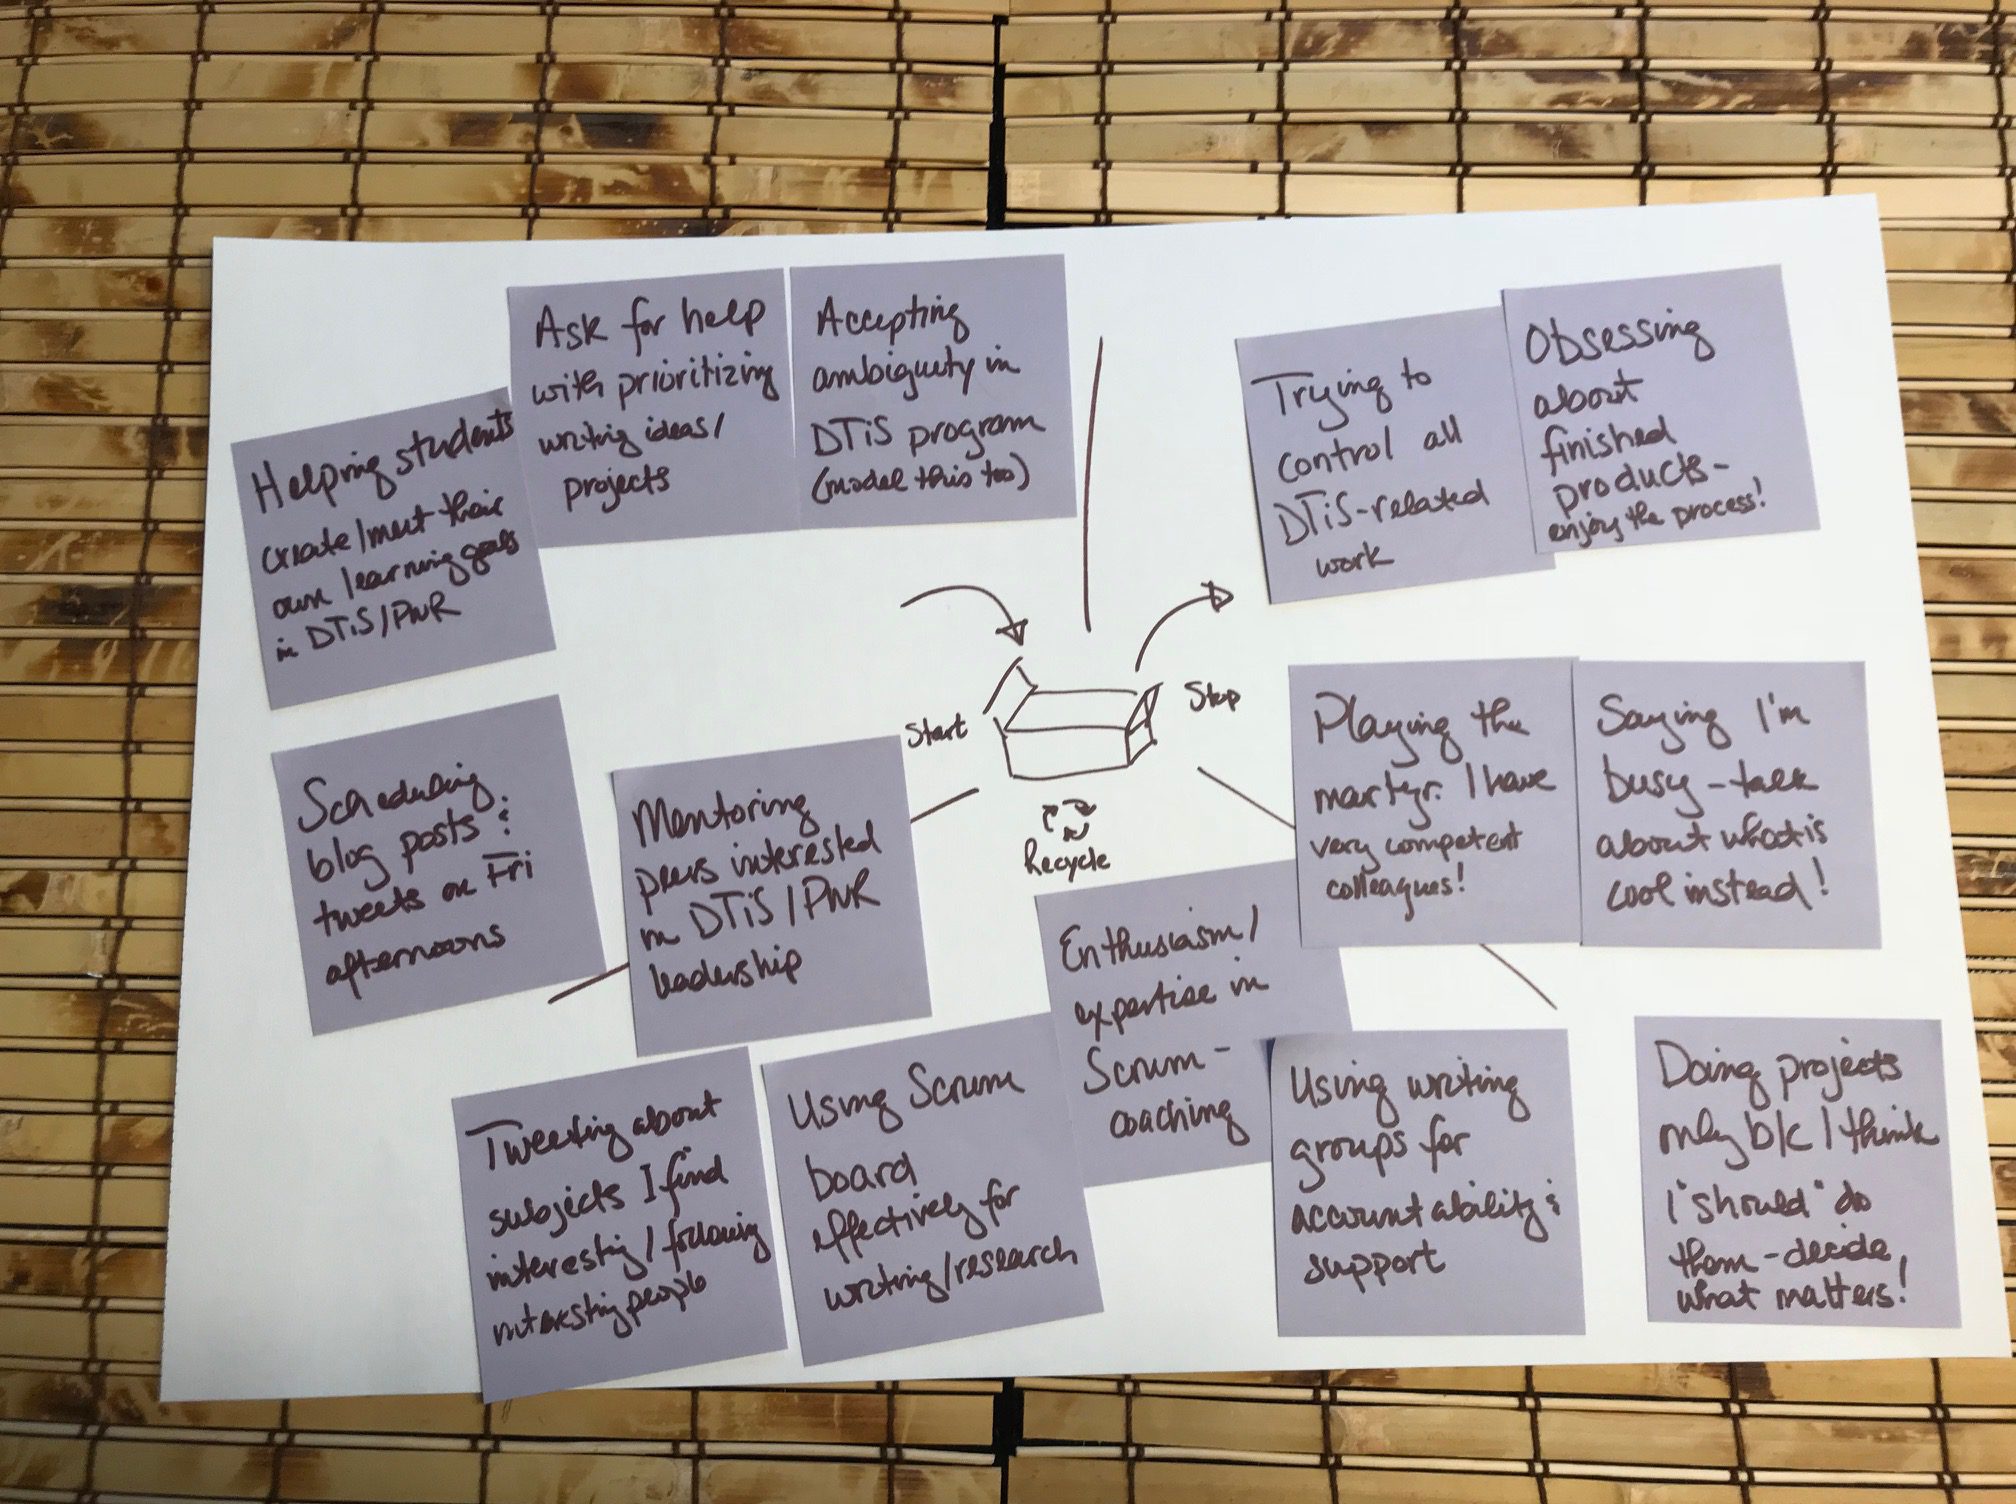 Helping students
create/meet their
own learning goals
in DTiS/PWR
Ask for help
with prioritizing
writing ideas/
projects
Accepting
ambiguity in
DTiS program
(model this too)
Trying to
control all
DTiS-related
work
Obsessing
about
finished
products-
enjoy the process!
Start
Stop
Recycle
Scheduling
blog posts &
tweets on Fri
afternoons
Mentoring
peers interested
in DTiS/PWR
leadership
Playing the
martyr. I have
very competent
colleagues!
Saying I'm
busy-talk
about what is
cool instead!
Tweeting about
subjects I find
interesting/following
interesting people
Using Scrum
board
effectively for
writing/research
Enthusiasm/
expertise in
Scrum-
coaching
Using writing
groups for
accountability &
support
Doing projects
only b/c I think
I "should" do
them-decide
what matters!